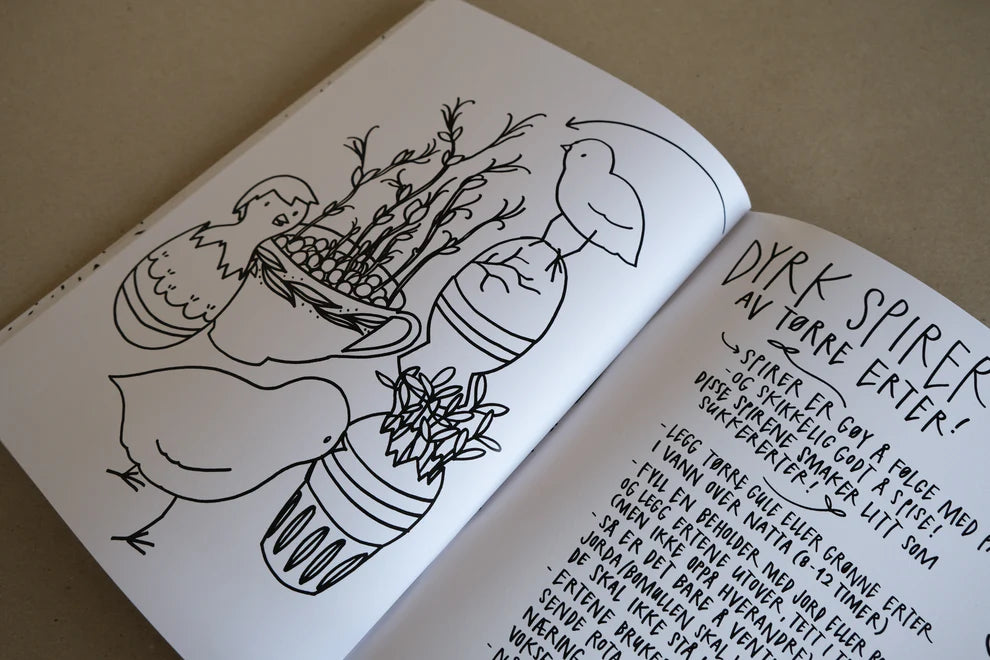 DYRK SPIRER
AV TØRRE ERTER!
SPIRER ER GØY Å FØLGE MED
-OG SKIKKELIG GODT Å SPISE!
DISSE SPIRENE SMAKER LITT SOM
SUKKERERTER!
-LEGG TØRRE GULE ELLER GRØNNE ERTER
I VANN OVER NATTA (8-12 TIMER)
-FYLL EN BEHOLDER MED JORD ELLER
OG LEGG ERTENE UTOVER, TETT I
(MEN IKKE OPPÅ HVERANDRE)
-SÅ ER DET BARE Å
JORDA/BOMULLEN SKAL
DE SKAL IKKE STÅ
-ERTENE
SENDE
NÆRING